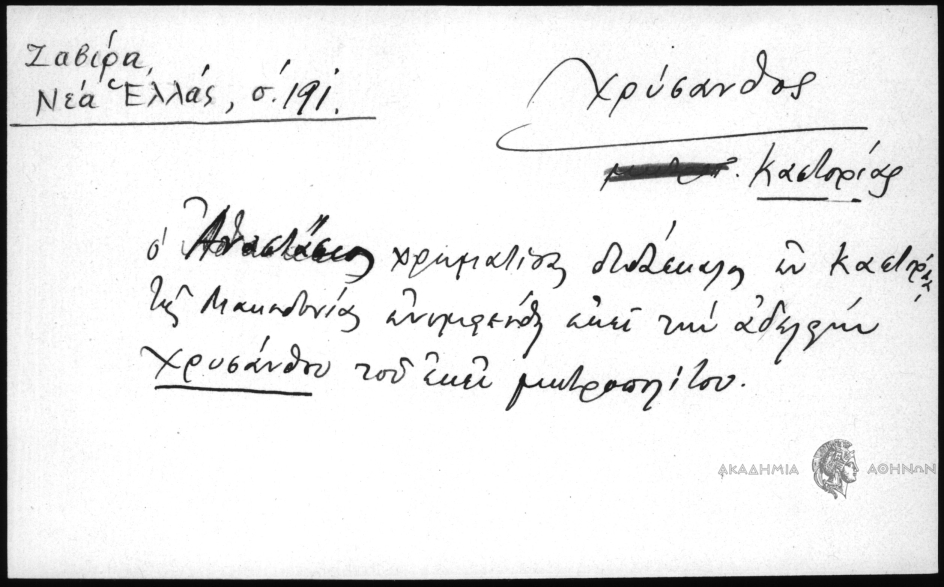 Ζαβίρα,
Νέα Ἑλλάς, σ. 191.
Χρύσανθος
Καστορίας
ὁ Ἀναστάσιος χρηματίσας διδάσκαλος ἐν Καστορίᾳ
τῆς Μακεδονίας ἐνυμφεύθη ἐκεῖ τὴν ἀδελφὴν
Χρυσάνθου τοῦ ἐκεῖ μητροπολίτου.
ΑΚΑΔΗΜΙΑ ΑΘΗΝΩΝ